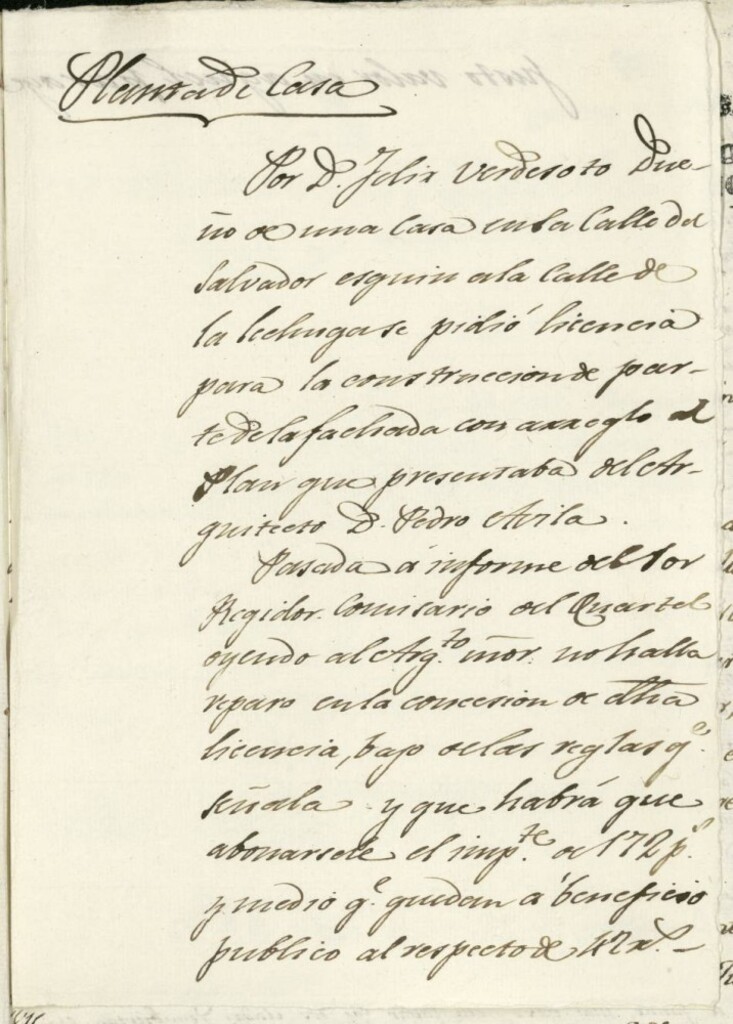 Planta de Casa
Por D. Felix Verdesoto Due-
ño de una Casa en la Calle del
Salvador esquin ala Calle de
la lechuga se pidió licencia
para la construccion de par-
te de la fachada con arreglo al
Plan que presentaba del Ar-
quitecto D. Pedro Avila.
Pasada á informe del Sor
Regidor Comisario del Quartel
oyendo al Arq.to mór. no halla
reparo en la concesion de dha
licencia, bajo de las reglas q.e
señala y que habrá que
abonarsele el imp.te de 172 p.s
y medio q.e quedan á beneficio
publico al respecto de